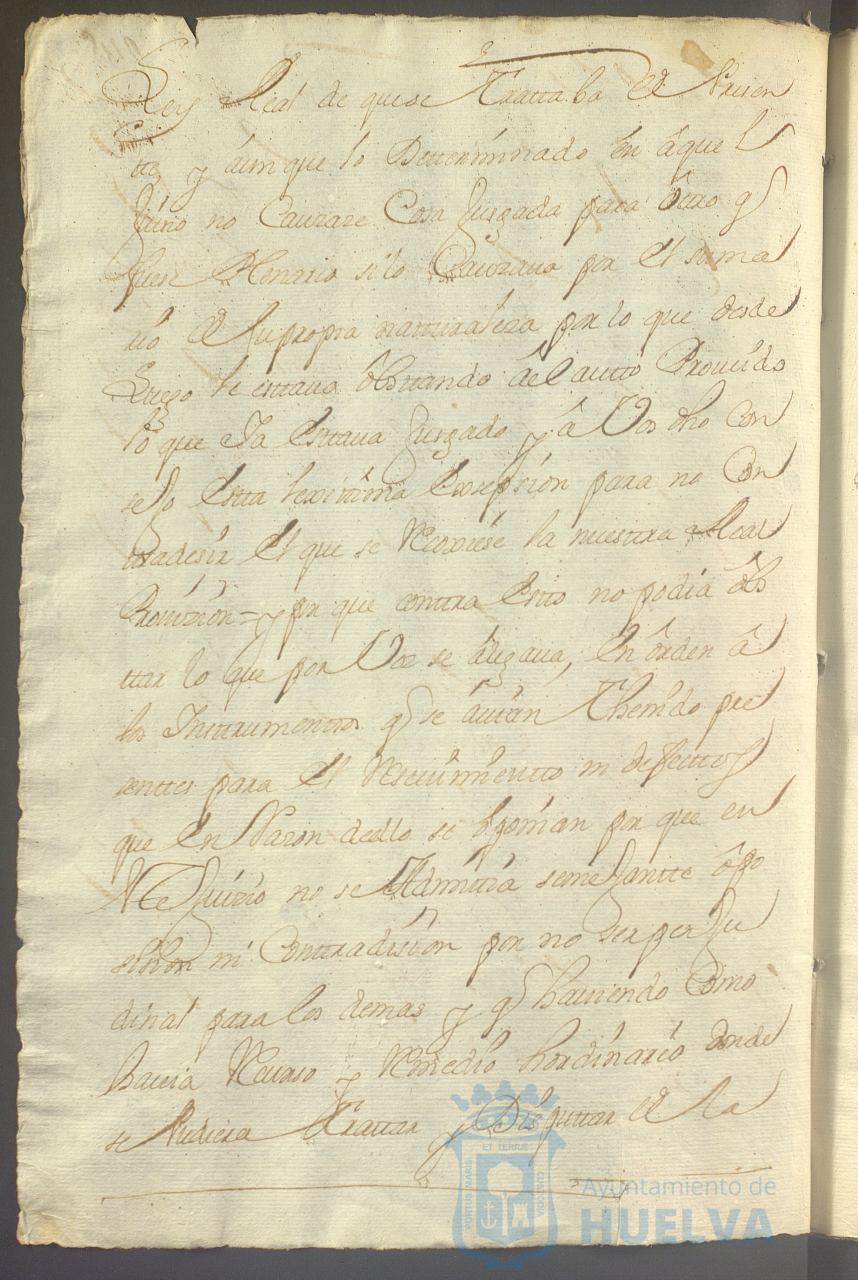 Ley Real de que se trattaba El Presen
te y âunque lo Detterminado en âquel
Juizio no Cauzase Cosa Juzgada para ôtro q
fuese Plenario si lo Cauzaua por el suma
rio de su propia natturaleza por lo que desde
Luego le estaua ôbstando âel autto Proueido
lo que Ya estaua Juzgado y â Vos dho Con
sejo esta lexitima exsepsion para no Con
tradesir el que se recoxiese la nuestra Real
Prouizion = y por que contra esto no podia ôbs
tar lo que por Vos se âlegaua, en ôrden â
los Instrumenttos q se âuian thenido pre
senttes para el Reseuimientto ni defecttos
que en Razon de ello se oponian por que en
este Juizio no se Admitia semejantte ôpo
sision ni Contradision por no ser perju
disial para los demas y q hauiendo Como
hauia Recurso y Remedio hordinario donde
se Pudiera trattar y Disputtar de la
PORTUS MARIS
ET TERRAE
CUSTODIA
Ayuntamiento de
HUELVA